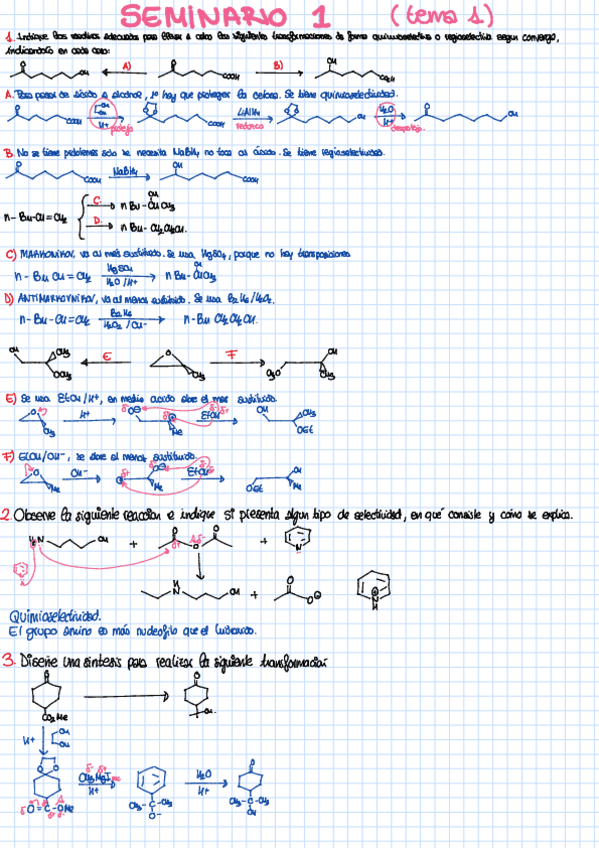 SEMINARIO 1 (tema 1)
1. Indique los reactivos adecuados para llevar a cabo las siguiente transformaciones de forma quimioselectiva o regioselectiva segun convenga,
indicandolo en cada caso:
OH A) COOH B) OH COOH
A. Para pasar de ácido a alcohol, hay que proteger la cetona. Se tiene quimioselectividad.
COOH OH OH H+ protejo COOH LiAlH4 reducción OH H2O H+ desprotejo OH
B. No se tiene problemas solo se necesita NaBH4 no toca al ácido. Se tiene regioselectividad.
COOH NaBH4 OH COOH
n-Bu-CH=CH2
C. n Bu-CHCH3 OH
D. n Bu-CH2CH2OH.
C) MARKONIKOV, va al más sustituido. Se usa HgSO4, porque no hay transposiciones
n-Bu CH=CH2 HgSO4 H2O/H+ n Bu-CHCH3 OH
D) ANTIMARKOVNIKOV, va al menos sustituido. Se usa B2H6/H2O2.
n-Bu-CH=CH2 B2H6 H2O2/OH- n-Bu CH2CH2OH.
OH CH3 E O CH3 F OH CH3
E) Se usa EtOH/H+, en medio acido abre el más sustituido.
O CH3 H+ Me EtOH OH CH3 OEt
F) EtOH/OH-, se abre al menos sustituido
O Me OH- Me EtOH OEt OH Me
2. Observe la siguiente reaccion e indique si presenta algun tipo de selectividad, en qué consiste y como se explica.
H2N OH + O O + N
N H OH + O O⊖ N H
Quimioselectividad.
El grupo amino es más nucleofilo que el
3. Diseñe una sintesis para realizar la siguiente transformación
O CO2Me O OH
H+ OH OH
O=C-OMe CH3MgI H+ CH3-C-CH3 O- H2O H+ O CH3-C-CH3 OH